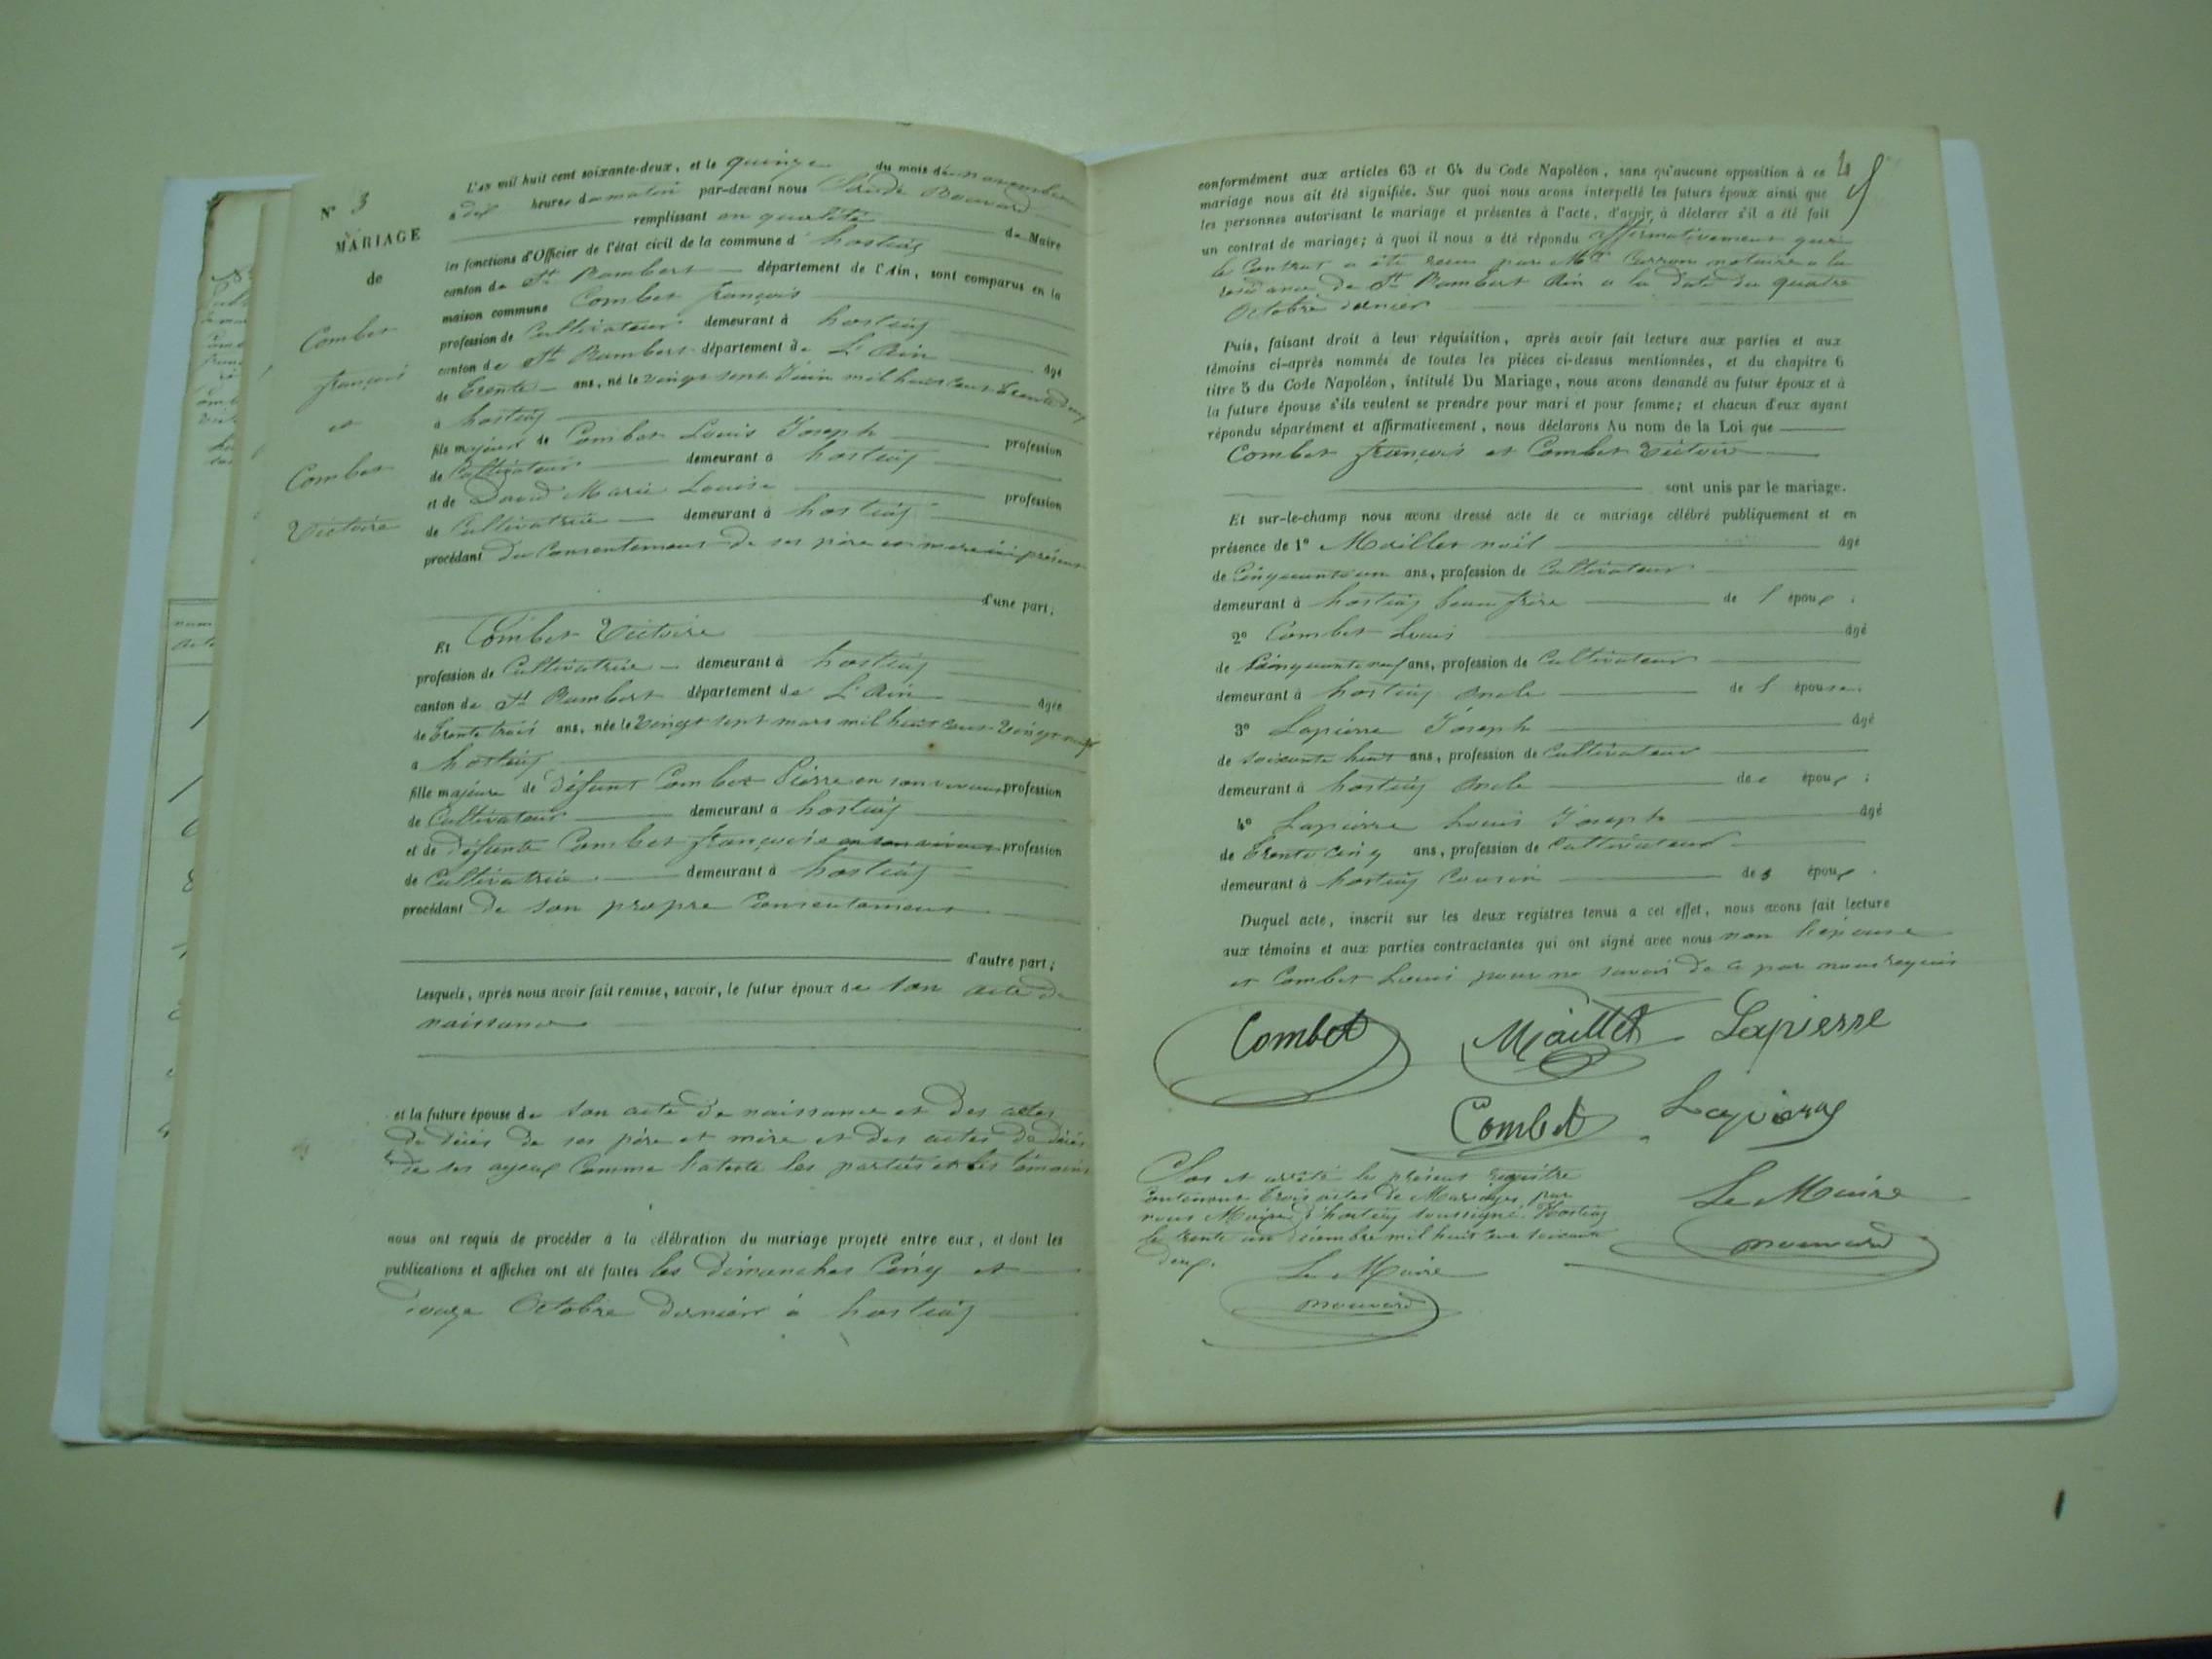 N° 3
MARIAGE
de
Combet
françois
et
Combet
Victoire
L'an mil huit cent soixante-deux, et le quinze du mois de novembre
à dix heures du matin par-devant nous
remplissant en qualité de Maire
les fonctions d'Officier de l'état civil de la commune d' hostiaz
canton de St Rambert département de l'Ain, sont comparus en la
maison commune Combet françois
profession de Cultivateur demeurant à hostiaz
canton de St Rambert département de L'Ain âgé
de trente ans, né le vingt sept Juin mil huit cent trente deux
à hostiaz
fils majeur de Combet Louis Joseph profession
de Cultivateur demeurant à hostiaz
et de David Marie Louise profession
de Cultivatrice demeurant à hostiaz
procédant du Consentement de ses père et mere ici présent
d'une part;
Et Combet Victoire
profession de Cultivatrice demeurant à hostiaz
canton de St Rambert département de L'Ain âgée
de trente trois ans, née le vingt sept mars mil huit cent vingt neuf
à hostiaz
fille majeure de défunt Combet Pierre en son vivant profession
de Cultivateur demeurant à hostiaz
et de défunte Combet françoise en son vivant profession
de Cultivatrice demeurant à hostiaz
procédant de son propre Consentement
d'autre part;
Lesquels, après nous avoir fait remise, savoir, le futur époux de son acte de
naissance
et la future épouse de son acte de naissance et des actes
de décès de ses père et mère et des actes de décès
de ses ayeux Comme l'ateste les parties et les témoins
nous ont requis de procéder à la célébration du mariage projeté entre eux, et dont les
publications et affiches ont été faites les dimanches Cinq et
douze Octobre dernier à hostiaz
conformément aux articles 63 et 64 du Code Napoléon, sans qu'aucune opposition à ce
mariage nous ait été signifiée. Sur quoi nous avons interpellé les futurs époux ainsi que
les personnes autorisant le mariage et présentes à l'acte, d'avoir à déclarer s'il a été fait
un contrat de mariage; à quoi il nous a été répondu affirmativement que
le Contrat a été recu par Me Carron notaire a la
residance de St Rambert Ain a la date du quatre
Octobre dernier
Puis, faisant droit à leur réquisition, après avoir fait lecture aux parties et aux
témoins ci-après nommés de toutes les pièces ci-dessus mentionnées, et du chapitre 6
titre 5 du Code Napoléon, intitulé Du Mariage, nous avons demandé au futur époux et à
la future épouse s'ils veulent se prendre pour mari et pour femme; et chacun d'eux ayant
répondu séparément et affirmativement, nous déclarons Au nom de la Loi que
Combet françois et Combet Victoire
sont unis par le mariage.
Et sur-le-champ nous avons dressé acte de ce mariage célébré publiquement et en
présence de 1° Maillet noël âgé
de Cinquante un ans, profession de Cultivateur
demeurant à hostiaz beau frère de l époux;
2° Combet Louis âgé
de Cinquante neuf ans, profession de Cultivateur
demeurant à hostiaz oncle de l épouse.
3° Lapierre Joseph âgé
de soixante huit ans, profession de Cultivateur
demeurant à hostiaz oncle de époux;
4° Lapierre Louis Joseph âgé
de trente Cinq ans, profession de Cultivateur
demeurant à hostiaz Cousin des époux.
Duquel acte, inscrit sur les deux registres tenus à cet effet, nous avons fait lecture
aux témoins et aux parties contractantes qui ont signé avec nous non l'épouse
et Combet Louis pour ne savoir de ce par nous requis
Combet Maillet Lapierre
Combet Lapierre
Clos et arrété le présent registre
contenant trois actes de Mariages par
nous Maire d'hostiaz soussigné. Hostiaz
le trente un décembre mil huit cent soixante
deux.
Le Maire
Le Maire